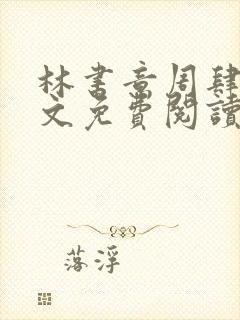 林书音周肆
文免費閱讀
落浮